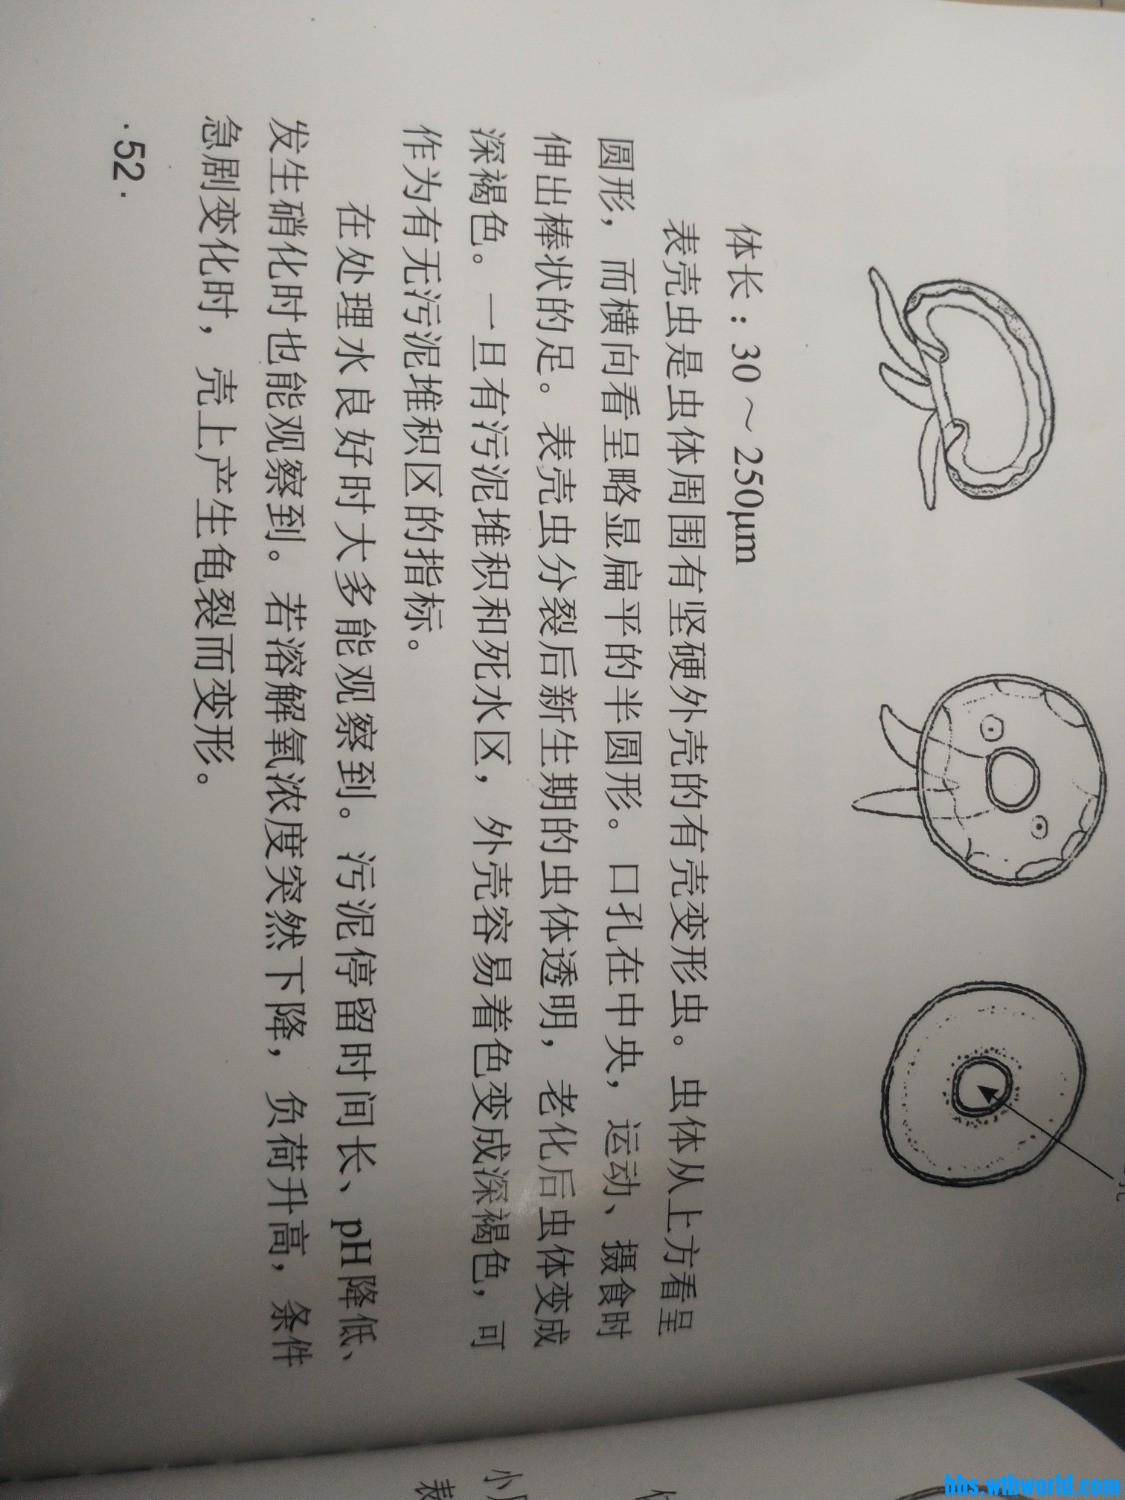 体长：30～250μm
表壳虫是虫体周围有坚硬外壳的有壳变形虫。虫体从上方看呈
圆形，而横向看呈略显扁平的半圆形。口孔在中央，运动、摄食时
伸出棒状的足。表壳虫分裂后新生期的虫体透明，老化后虫体变成
深褐色。一旦有污泥堆积和死水区，外壳容易着色变成深褐色，可
作为有无污泥堆积区的指标。
在处理水良好时大多能观察到。污泥停留时间长、pH降低、
发生硝化时也能观察到。若溶解氧浓度突然下降，负荷升高，条件
急剧变化时，壳上产生龟裂而变形。
·52·
小
表
bbs.wtbworld.com